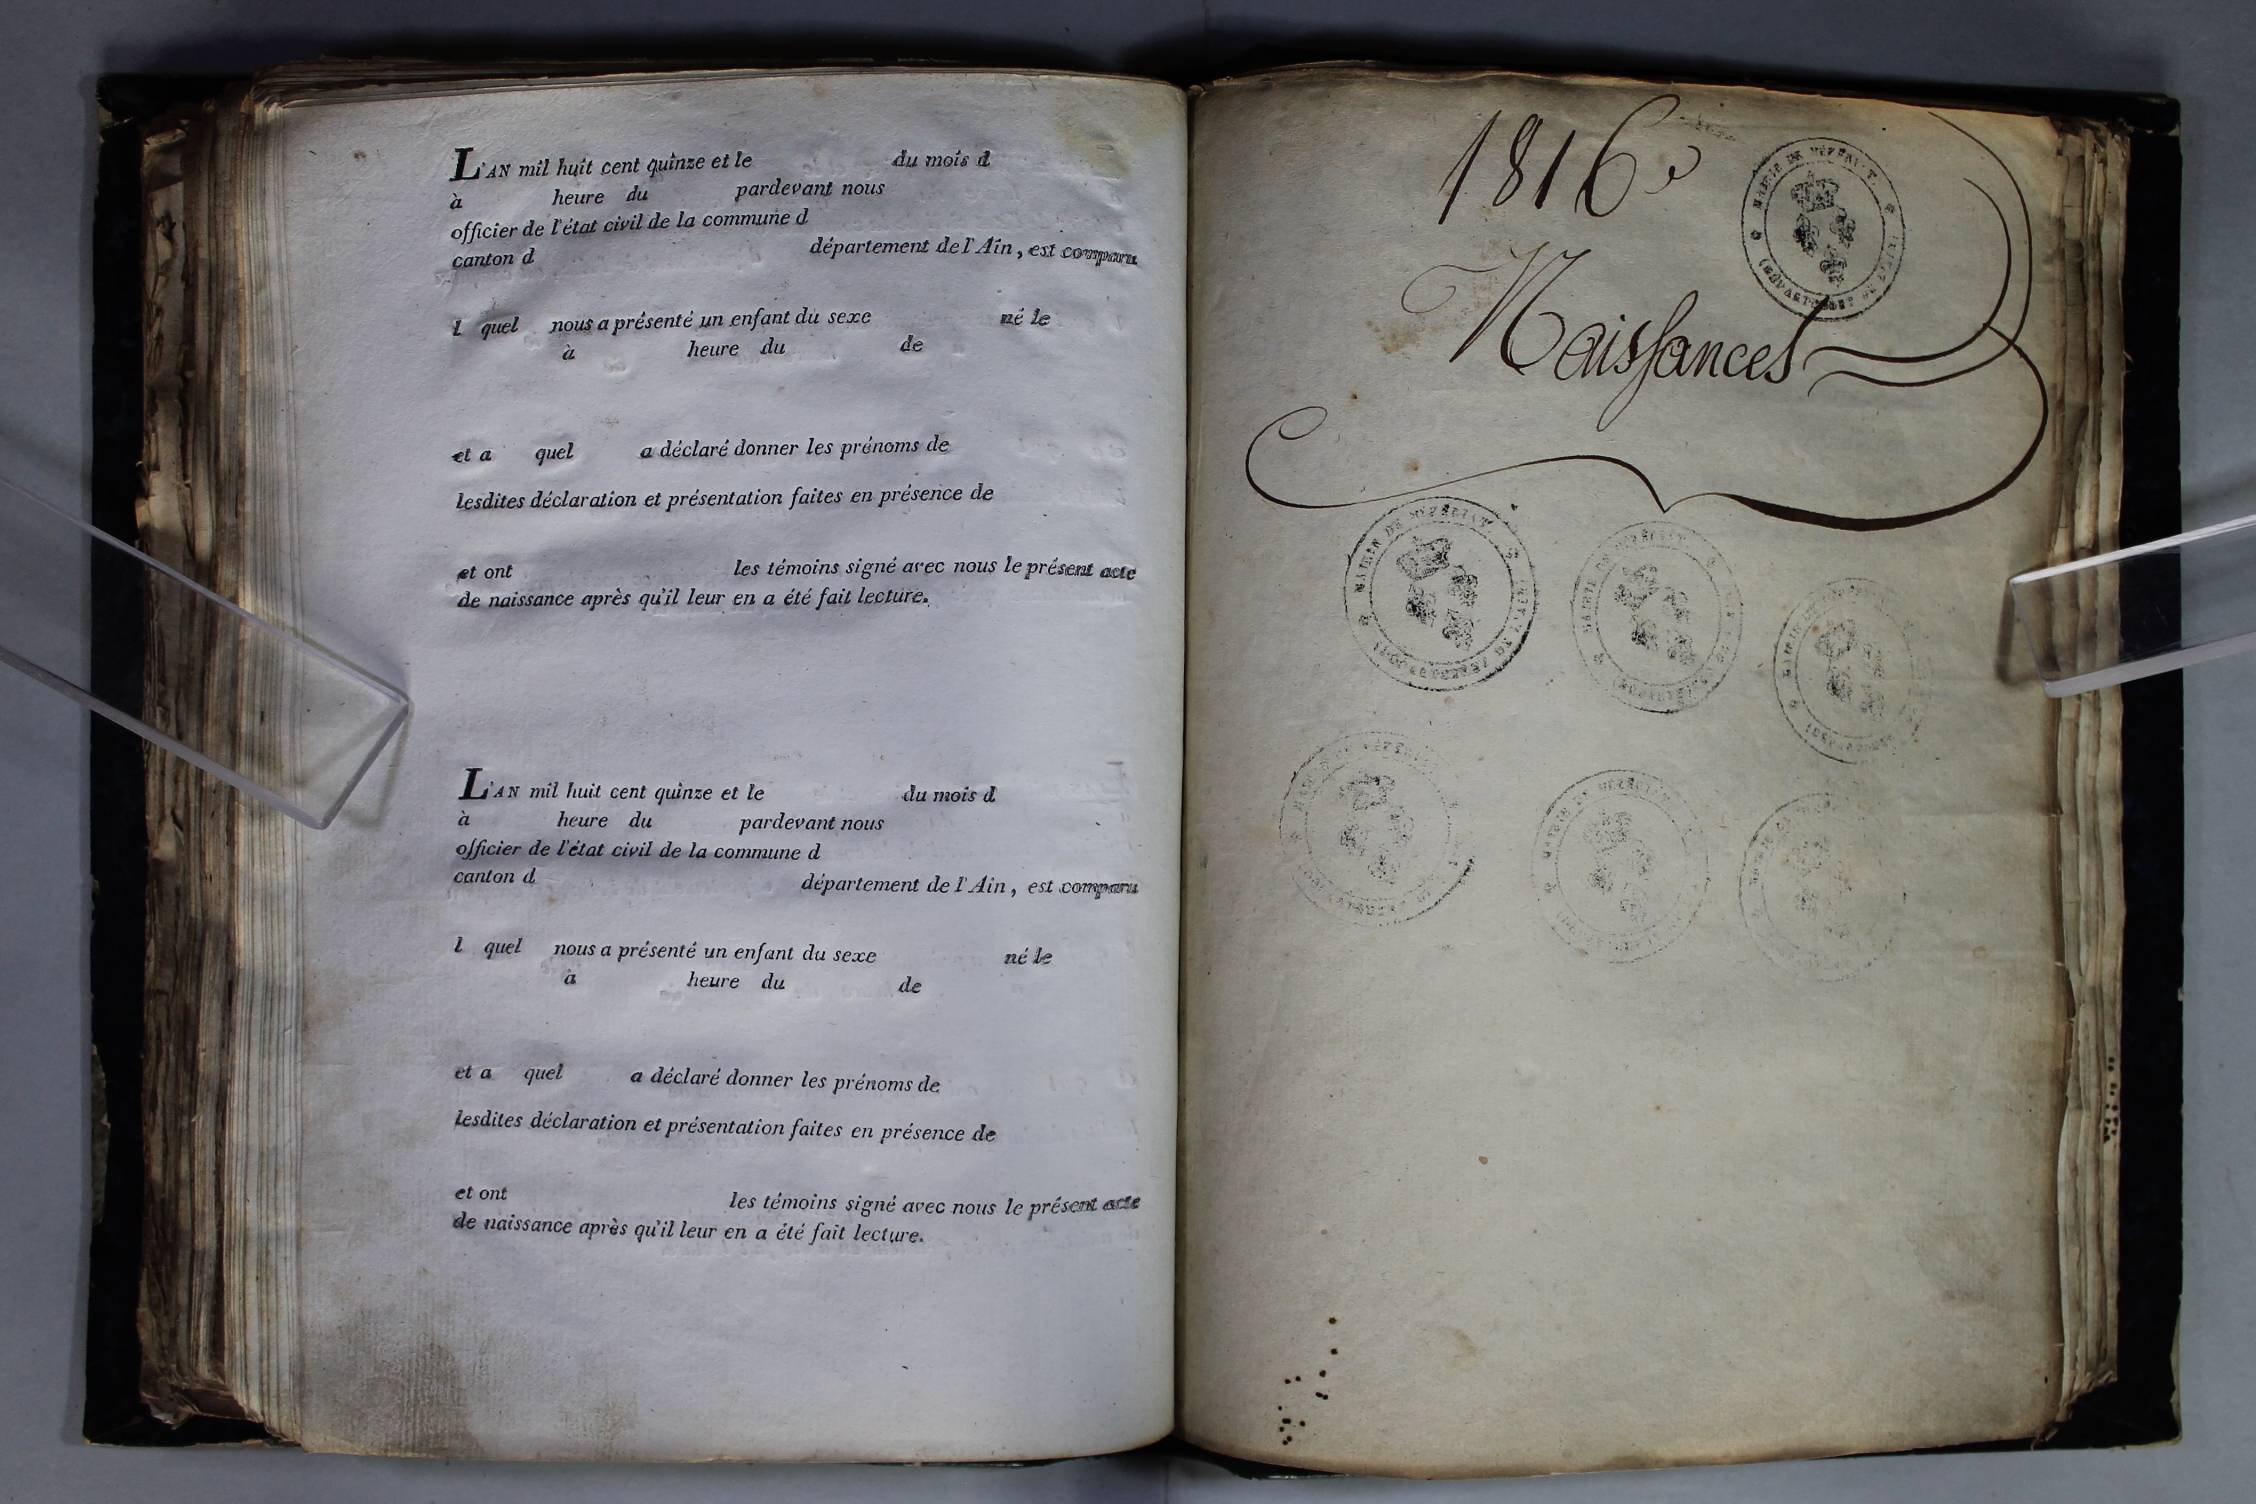 L'AN mil huit cent quinze et le du mois d
à heure du pardevant nous
officier de l'état civil de la commune d
canton d département de l'Ain, est comparu
l quel nous a présenté un enfant du sexe né le
à heure du de
et a quel a déclaré donner les prénoms de
lesdites déclaration et présentation faites en présence de
et ont les témoins signé avec nous le présent acte
de naissance après qu'il leur en a été fait lecture.
L'AN mil huit cent quinze et le du mois d
à heure du pardevant nous
officier de l'état civil de la commune d
canton d département de l'Ain, est comparu
l quel nous a présenté un enfant du sexe né le
à heure du de
et a quel a déclaré donner les prénoms de
lesdites déclaration et présentation faites en présence de
et ont les témoins signé avec nous le présent acte
de naissance après qu'il leur en a été fait lecture.
1816
Naissances
MAIRIE DE MÉZÉRIAT
MAIRIE DE MÉZÉRIAT
MAIRIE DE MÉZÉRIAT
MAIRIE DE
MAIRIE DE MÉZÉRIAT